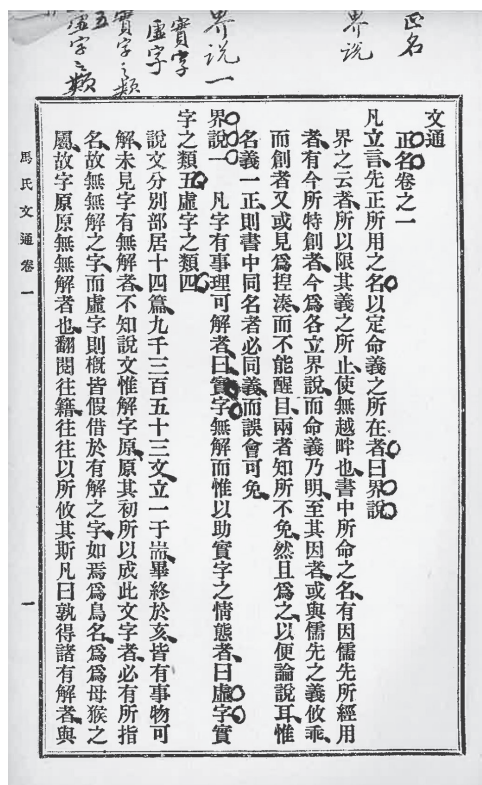 正名
界说
界说一
實字
虛字
實字之類
五
虛字之類
文通
正名卷之一
凡立言、先正所用之名以定命義之所在者曰界說
界之云者、所以限其義之所止、使無越畔也、書中所命之名、有因儒先所經用
者、有今所特創者、今爲各立界說、而命義乃明、至其因者、或與儒先之義攸乖、
而創者又或見爲揑湊、而不能醒目、兩者知所不免、然且爲之、以便論說耳、惟
名義一正、則書中同名者必同義、而誤會可免、
界說一 凡字有事理可解者、曰實字、無解而惟以助實字之情態者、曰虛字實
字之類五、虛字之類四
說文分別部居十四篇、九千三百五十三文、立一于耑、畢終於亥、皆有事物可
解、未見字有無解者、不知說文惟解字原、原其初所以成此文字者、必有所指
名、故無無解之字、而虛字則槪皆假借於有解之字、如焉爲鳥名、爲爲母猴之
屬、故字原原無無解者也、翻閱往籍、往往以所攸其斯凡曰孰得諸有解者、與
馬氏文通卷一
一